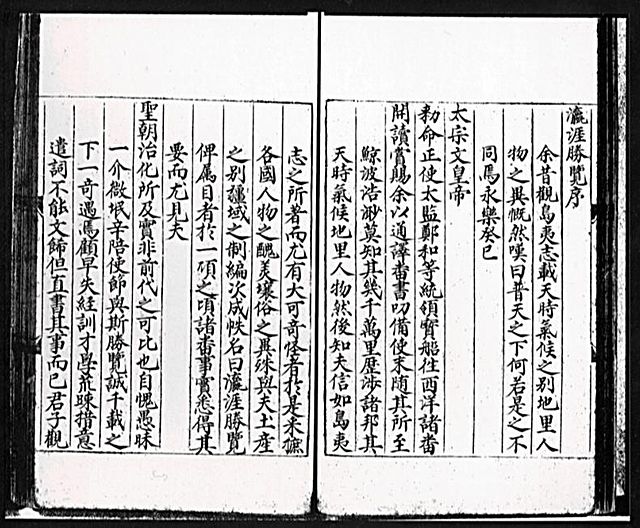 瀛涯勝覽序
余昔觀島夷志載天時氣候之別地里人
物之異慨然嘆曰普天之下何若是之不
同焉永樂癸巳
太宗文皇帝
勑命正使太監鄭和等統領寳船徃西洋諸畨
開讀賞賜余以通譯畨書叨備使末随其所至
鯨波浩渺莫知其幾千萬里歷涉諸邦其
天時氣候地里人物然後知夫信如島夷
志之所著而尤有大可奇怪者扵是采摭
各國人物之醜美壤俗之異殊與夫土産
之别疆域之制編次成帙名曰瀛涯勝覽
俾属目者扵一頋之頃諸畨事實悉得其
要而尤見夫
聖朝治化所及實非前代之可比也自愧愚昧
一介微氓辛陪使節與斯勝覽誠千載之
下一奇遇焉顧早失経訓才學荒踈措意
遣詞不能文餙但直書其事而已君子觀